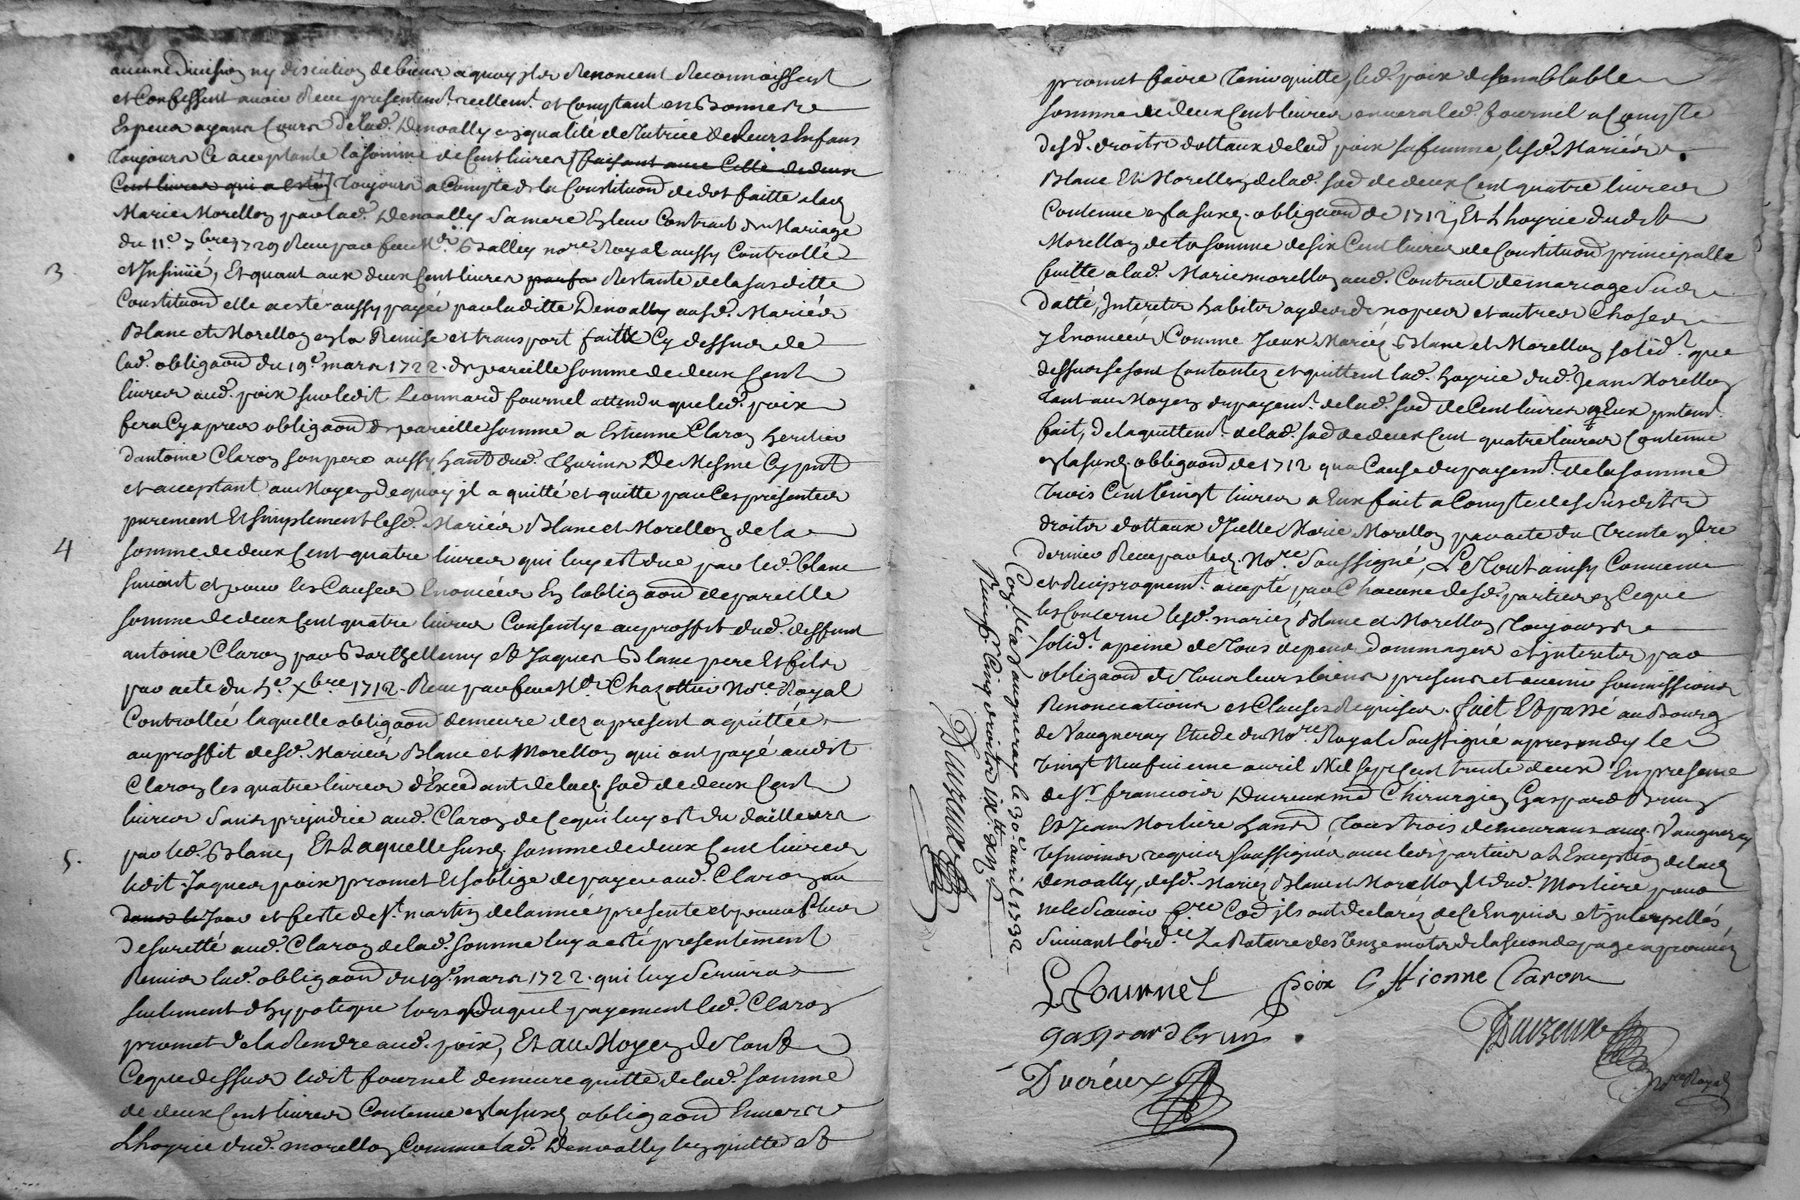 aucune division ny discution de biens a quoy ils Renoncent Reconnoissent
et Confessent avoir Receu presentem.t reellem.t et Comptant en Bonnes
Especes ayans Cours de lad. Denoally en qualité de Tutrice de Leurs Enfans
Toujours Ce acceptante la somme de Cent livres faisant avec Celle de deux
Cent livres qui a esté Toujours a Compte de la Constituon de dot faitte a lad.
Marie Morellon par lad. Denoally sa mere En leur Contract de Mariage
du 11.e 7bre 1729 Receu par feu M.e Balley no.re Royal aussy Controllé
3 et Insinué, Et quant aux deux Cent livres Restante de la susditte
Constituon elle a esté aussy payée par laditte Denoally ausd. Mariés
Blanc et Morellon en la Remise et transport faitte Cy dessus de
lad. obligaon du 19.e mars 1722. de pareille somme de deux Cent
livres aud. poix sur ledit Leonnard fournel attendu que led. poix
fera Cy apres obligaon de pareille somme a Estienne Claron heritier
d'antoine Claron son pere aussy hant dud. Thurins De Mesme Cy pnt
et acceptant au Moyen de quoy il a quitté et quitte par Ces presentes
purement Et simplement lesd. Mariés Blanc et Morellon de la
4 somme de deux Cent quatre livres qui luy est due par led. blanc
suivant et pour les Causes Enoncées En l'obligaon de pareille
somme de deux Cent quatre livres Consentye au proffit dud. deffunt
antoine Claron par Barthellemy Et Jaques Blanc pere Et fils
par acte du 4.e Xbre 1712. Receu par feu M.e Chazottier No.re Royal
Controllée laquelle obligaon demeure dez a present aquittée
au proffit desd. Mariés Blanc et Morellon qui ont payé audit
Claron les quatre livres d'Excedant de lad. so.e de deux Cent
livres sans prejudice aud. Claron de Ce qui luy est du d'ailleurs
5. par led. Blanc, Et Laquelle susd. somme de deux Cent livres
ledit Jaques poix promet Et s'oblige de payer aud. Claron au
dans le Jour et feste de S.t martin de lannée presente et pour plus
de suretté aud. Claron de lad. somme luy a esté presentement
Remis lad. obligaon du 19.e mars 1722. qui luy servira
seulement d'hypoteque lors duquel payement led. Claron
promet de la Rendre aud. poix, Et au Moyen de Tout
Ce que dessus ledit fournel demeure quitte de lad. somme
de deux Cent livres Contenue en la susd. obligaon Envers
L'hoyrie dud. morellon Comme lad. Denoally len quitte et
promet faire Tenir quitte, led. poix de semblable
somme de deux Cent livres envers led. fournel a Compte
desd. droits dottaux de lad. poix sa femme, lesd. Mariés
Blanc Et Morellon de lad. so.e de deux Cent quatre livres
Contenue en la susd. obligaon de 1712, Et L'hoyrie dudit
Morellon de la somme de six Cent livres de Constituon principalle
faitte a lad. Marie morellon aud. Contract de mariage sus
datté, Interets habits ayderes de nopces et autres Choses
y Enoncées Comme Iceux Mariés Blanc et Morellon solid.t que
dessus se sont Contantez et quittent lad. hoyrie dud. Jean Morellon
Tant au Moyen du payem.t de lad. so.e de Cent livres a Eux pntem.t
fait, de laquittem.t de lad. so.e de deux Cent quatre livres Contenue
en la susd. obligaon de 1712 qu'a Cause du payem.t de la somme
Trois Cent Vingt livres a Eux fait a Compte des susdits
droits dottaux d'Icelle Marie Morellon par acte du Trente 9bre
dernier Receu par led. No.re Soussigné, Le Tout ainsy Convenu
et Reciproquem.t accepté par Chacune desd. parties en Ce que
les Concerne lesd. mariés Blanc et Morellon Toujours
solid.t a peine de Tous depens Dommages et interets par
obligaon de Tous leurs biens presens et avenir soumissions
Renonciations et Clauses Requises. fait Et passé au Bourg
de Vaugneray Etude du No.re Royal Soussigné apres midy le
Vingt Neufvieme avril Mil Sept Cent trente deux En presence
de S.r francois Ducreux m.e Chirurgien Gaspard Brun
Et Jean Morliere hans Tous trois demeurans aud. Vaugneray
Tesmoins requis soussignes avec les parties a L'Exception de lad.
Denoally, desd. Mariés Blanc et Morellon Et dud. Morliere pour
ne le Scavoir f.re Co.e ils ont declarés de Ce Enquis et interpellés
Suivant l'ord.ce La Rature des Treize mots de la seconde page approuvée
LFournel poix Estienne Claron
gaspard brun
Ducreux
Duizeux
No.re Royal
Con.llé a Vaugneray le 30.e avril 1732
Receu Cinq
Duizeux